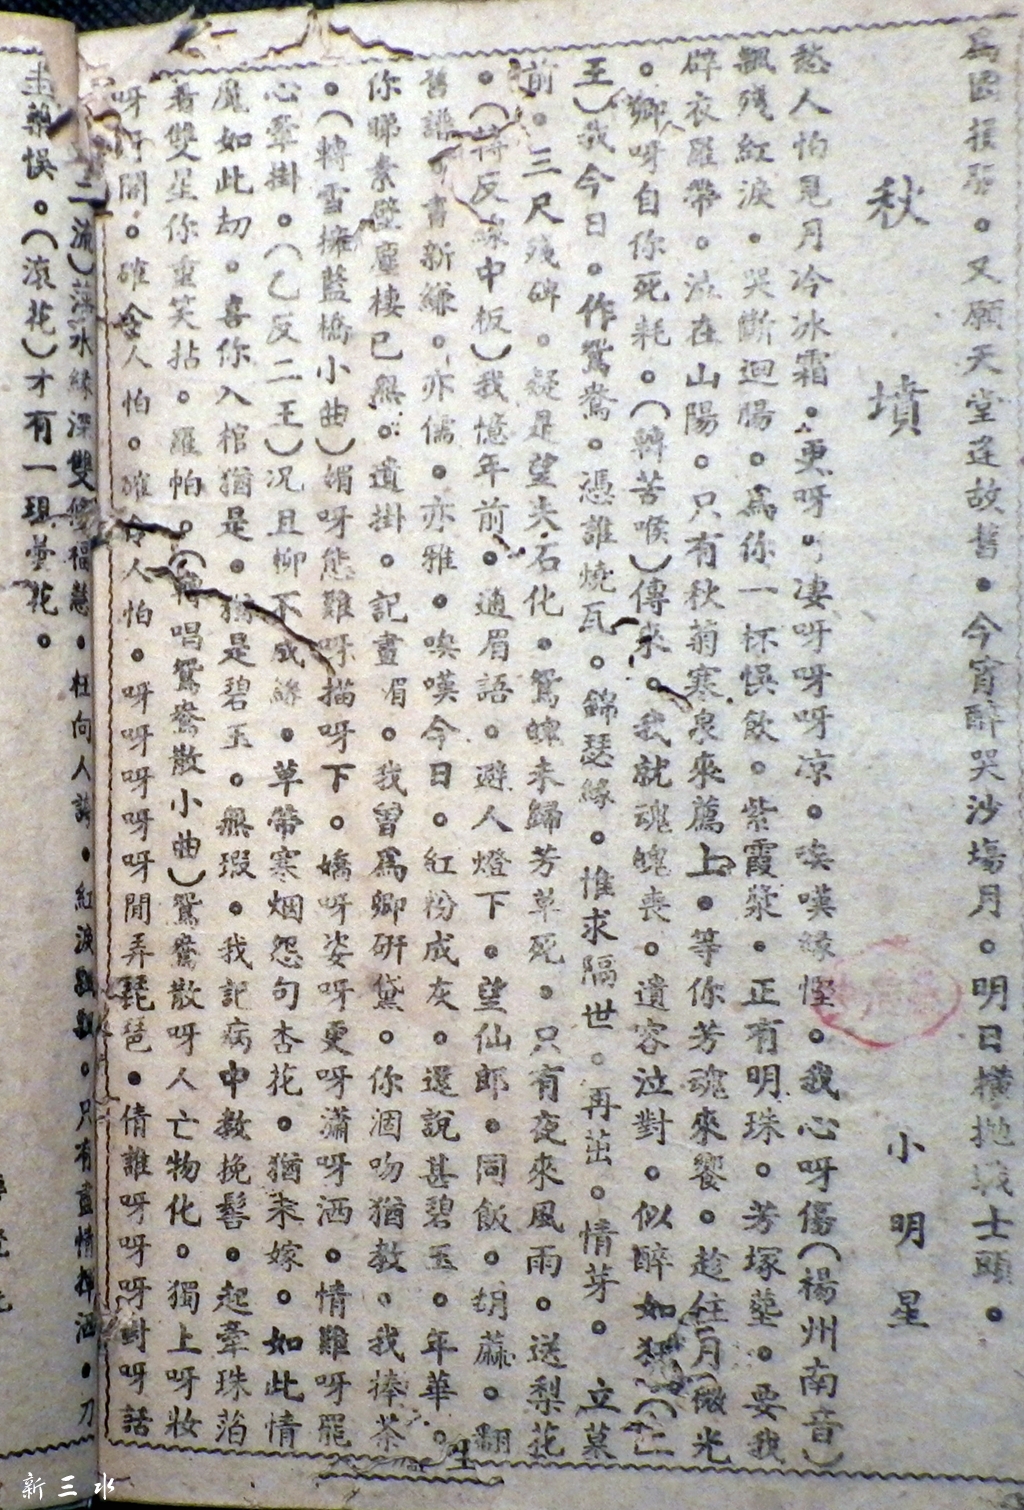 為國捐軀。又願天堂逢故舊。今宵醉哭沙塲月。明日橫拋戰士頭。
秋墳 小明星
愁人怕見月冷冰霜。更呀凄呀呀呀凉。唉嘆緣慳。我心呀傷(楊州南音)
飄殘紅淚。哭斷迴腸。為你一杯悞飲。紫霞漿。正有明珠。芳塚塟。要我
辟衣羅帶。泣在山陽。只有秋菊寒泉來薦上。等你芳魂來饗。趁住月微光
。卿呀自你死耗。(轉苦喉)傳來。我就魂魄喪。遺容泣對。似醉如狂(二
王)我今日。作鴛鴦。憑誰燒瓦。錦瑟緣。惟求隔世。再茁。情芽。立墓
前。三尺殘碑。疑是望夫石化。鴛魄未歸芳草死。只有夜來風雨。送梨花
。(轉反線中板)我憶年前。通眉語。避人燈下。望仙郎。同飯。胡蔴。翻
舊譜。書新縑。亦儒。亦雅。唉嘆今日。紅粉成灰。還說甚碧玉。年華。
你睇素壁塵棲已無。遺掛。記畫眉。我曾為卿研黛。你涸吻猶教。我捧茶
。(轉雪擁藍橋小曲)媚呀態難呀描呀下。嬌呀姿呀更呀瀟呀洒。情難呀罷
心牽掛。(乙反二王)况且柳不成絲。草帶寒烟怨句杏花。猶未嫁。如此情
魔如此劫。喜你入棺猶是。猶是碧玉。無瑕。我記病中教挽髻。起牽珠箔
看雙星你重笑拈。羅帕。(轉唱鴛鴦散小曲)鴛鴦散呀人亡物化。獨上呀妝
呀閣。確令人怕。確令人怕。呀呀呀呀呀閒弄琵琶。倩誰呀呀呀對呀話
二流)萍水緣深雙修福慧。枉向人誇。紅淚飄飄。只有盡情揮洒。刀
圭藥悞。(滾花)才有一現曇花。
新三水